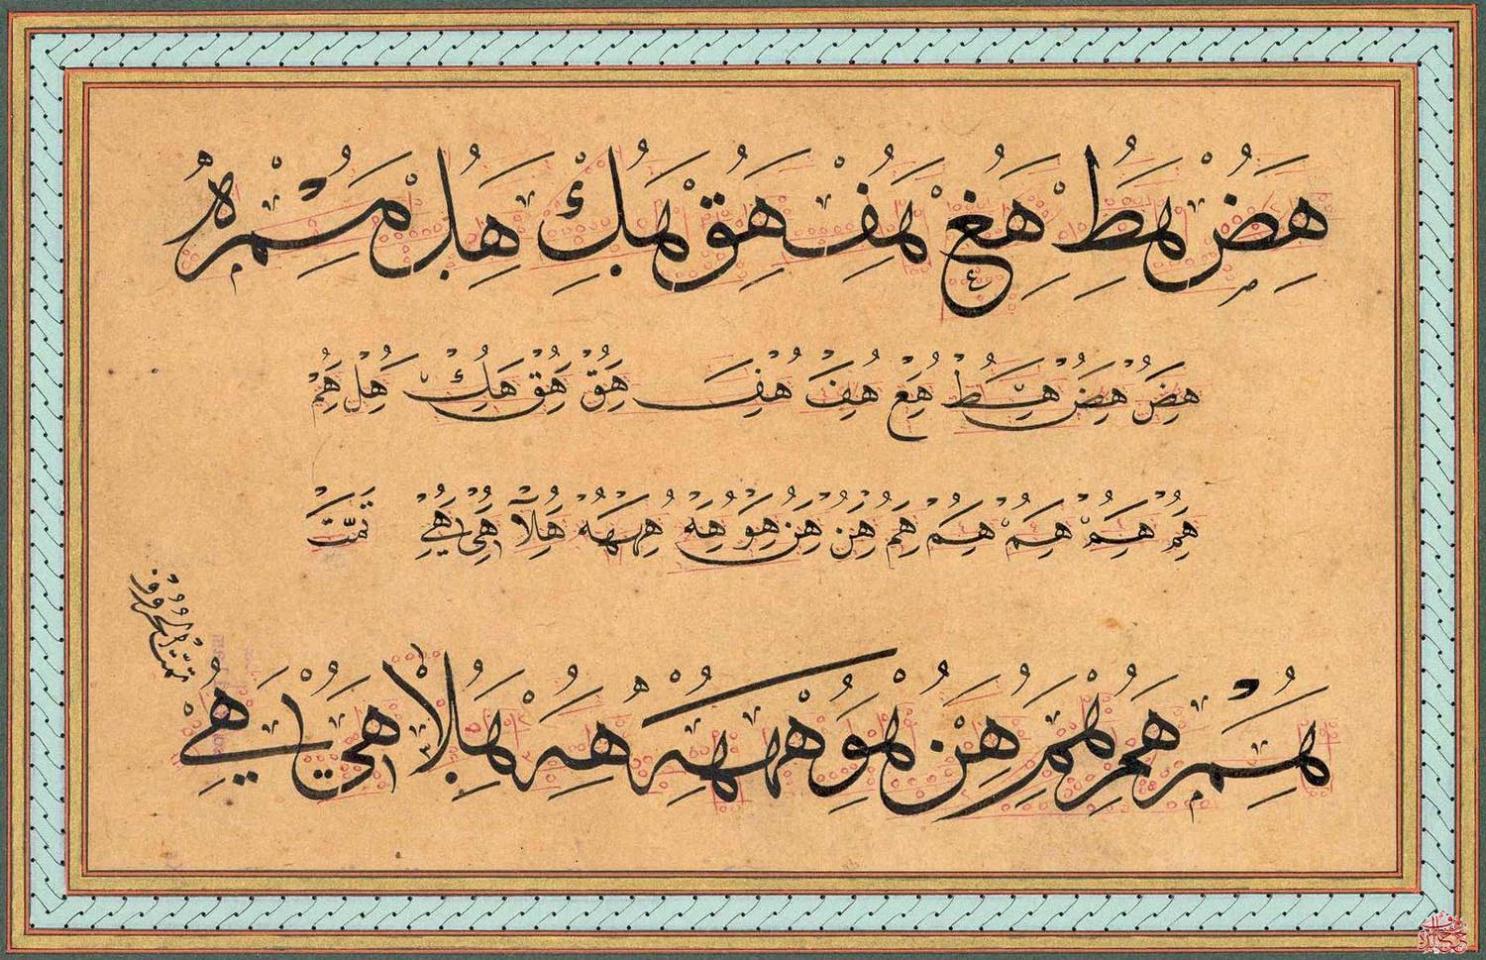 هض هط هغ هف هق هك هل
هض هض هط هغ هف هف هق هق هك هل هم
هم هم هم هم هم هن هن هو هه ههه هلا هى هي تمت
تمت الحروف
هم هم هم هن هو ههه هه هلا هي هي